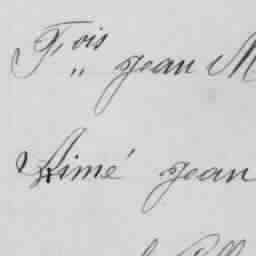 Fois Jean M
Aimé Jean